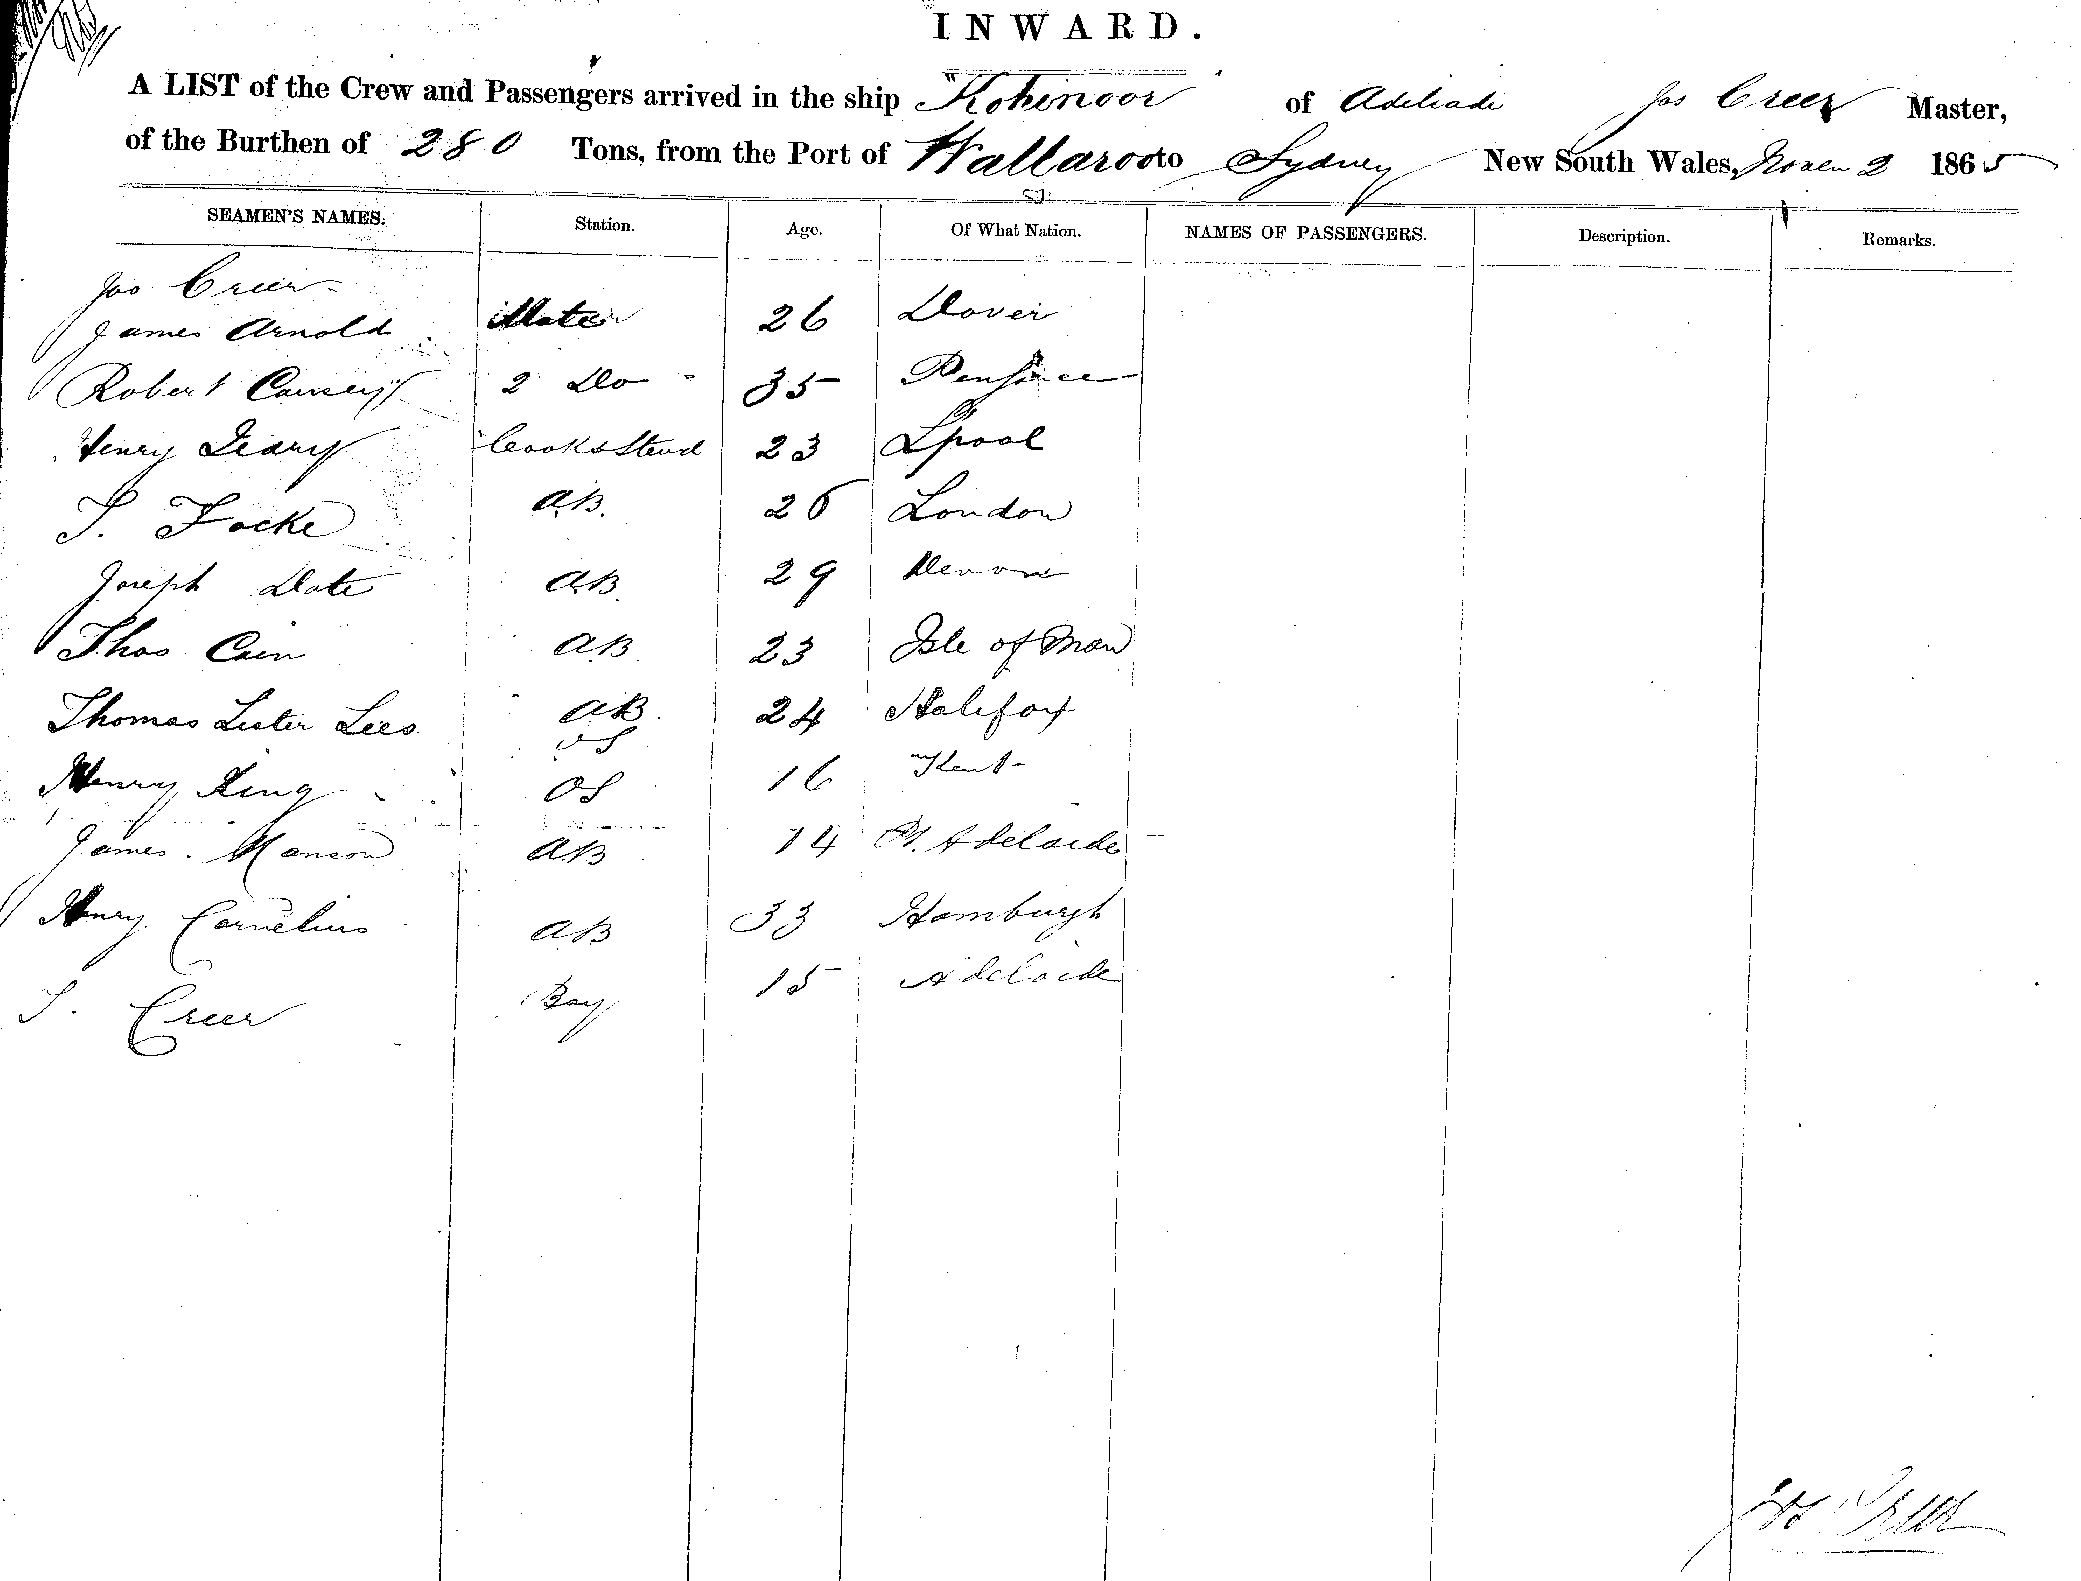 INWARD.
A LIST of the Crew and Passengers arrived in the ship "Kohinoor of Adeliade Jos Creer Master,
of the Burthen of 280 Tons, from the Port of Wallaroo to Sydney New South Wales, Novem 2 1865
SEAMEN'S NAMES. Station. Age. Of What Nation. NAMES OF PASSENGERS. Description. Remarks.
Jos Creer
James Arnold Mate 26 Dover
Robert 2 Do 35 Pensance
Henry Cook & Stewd 23 Lpool
A.B. 26 London
Joseph Date A.B. 29 Devon
Thos Cain A.B. 23 Isle of Man
Thomas Lister Lees AB 24 Halifax
OS
Henry King OS 16 Kent
James Manson AB 14 Pt. Adelaide
Henry Cornelius AB 33 Hamburgh
T. Creer Boy 15 Adelaide
Jos Creer